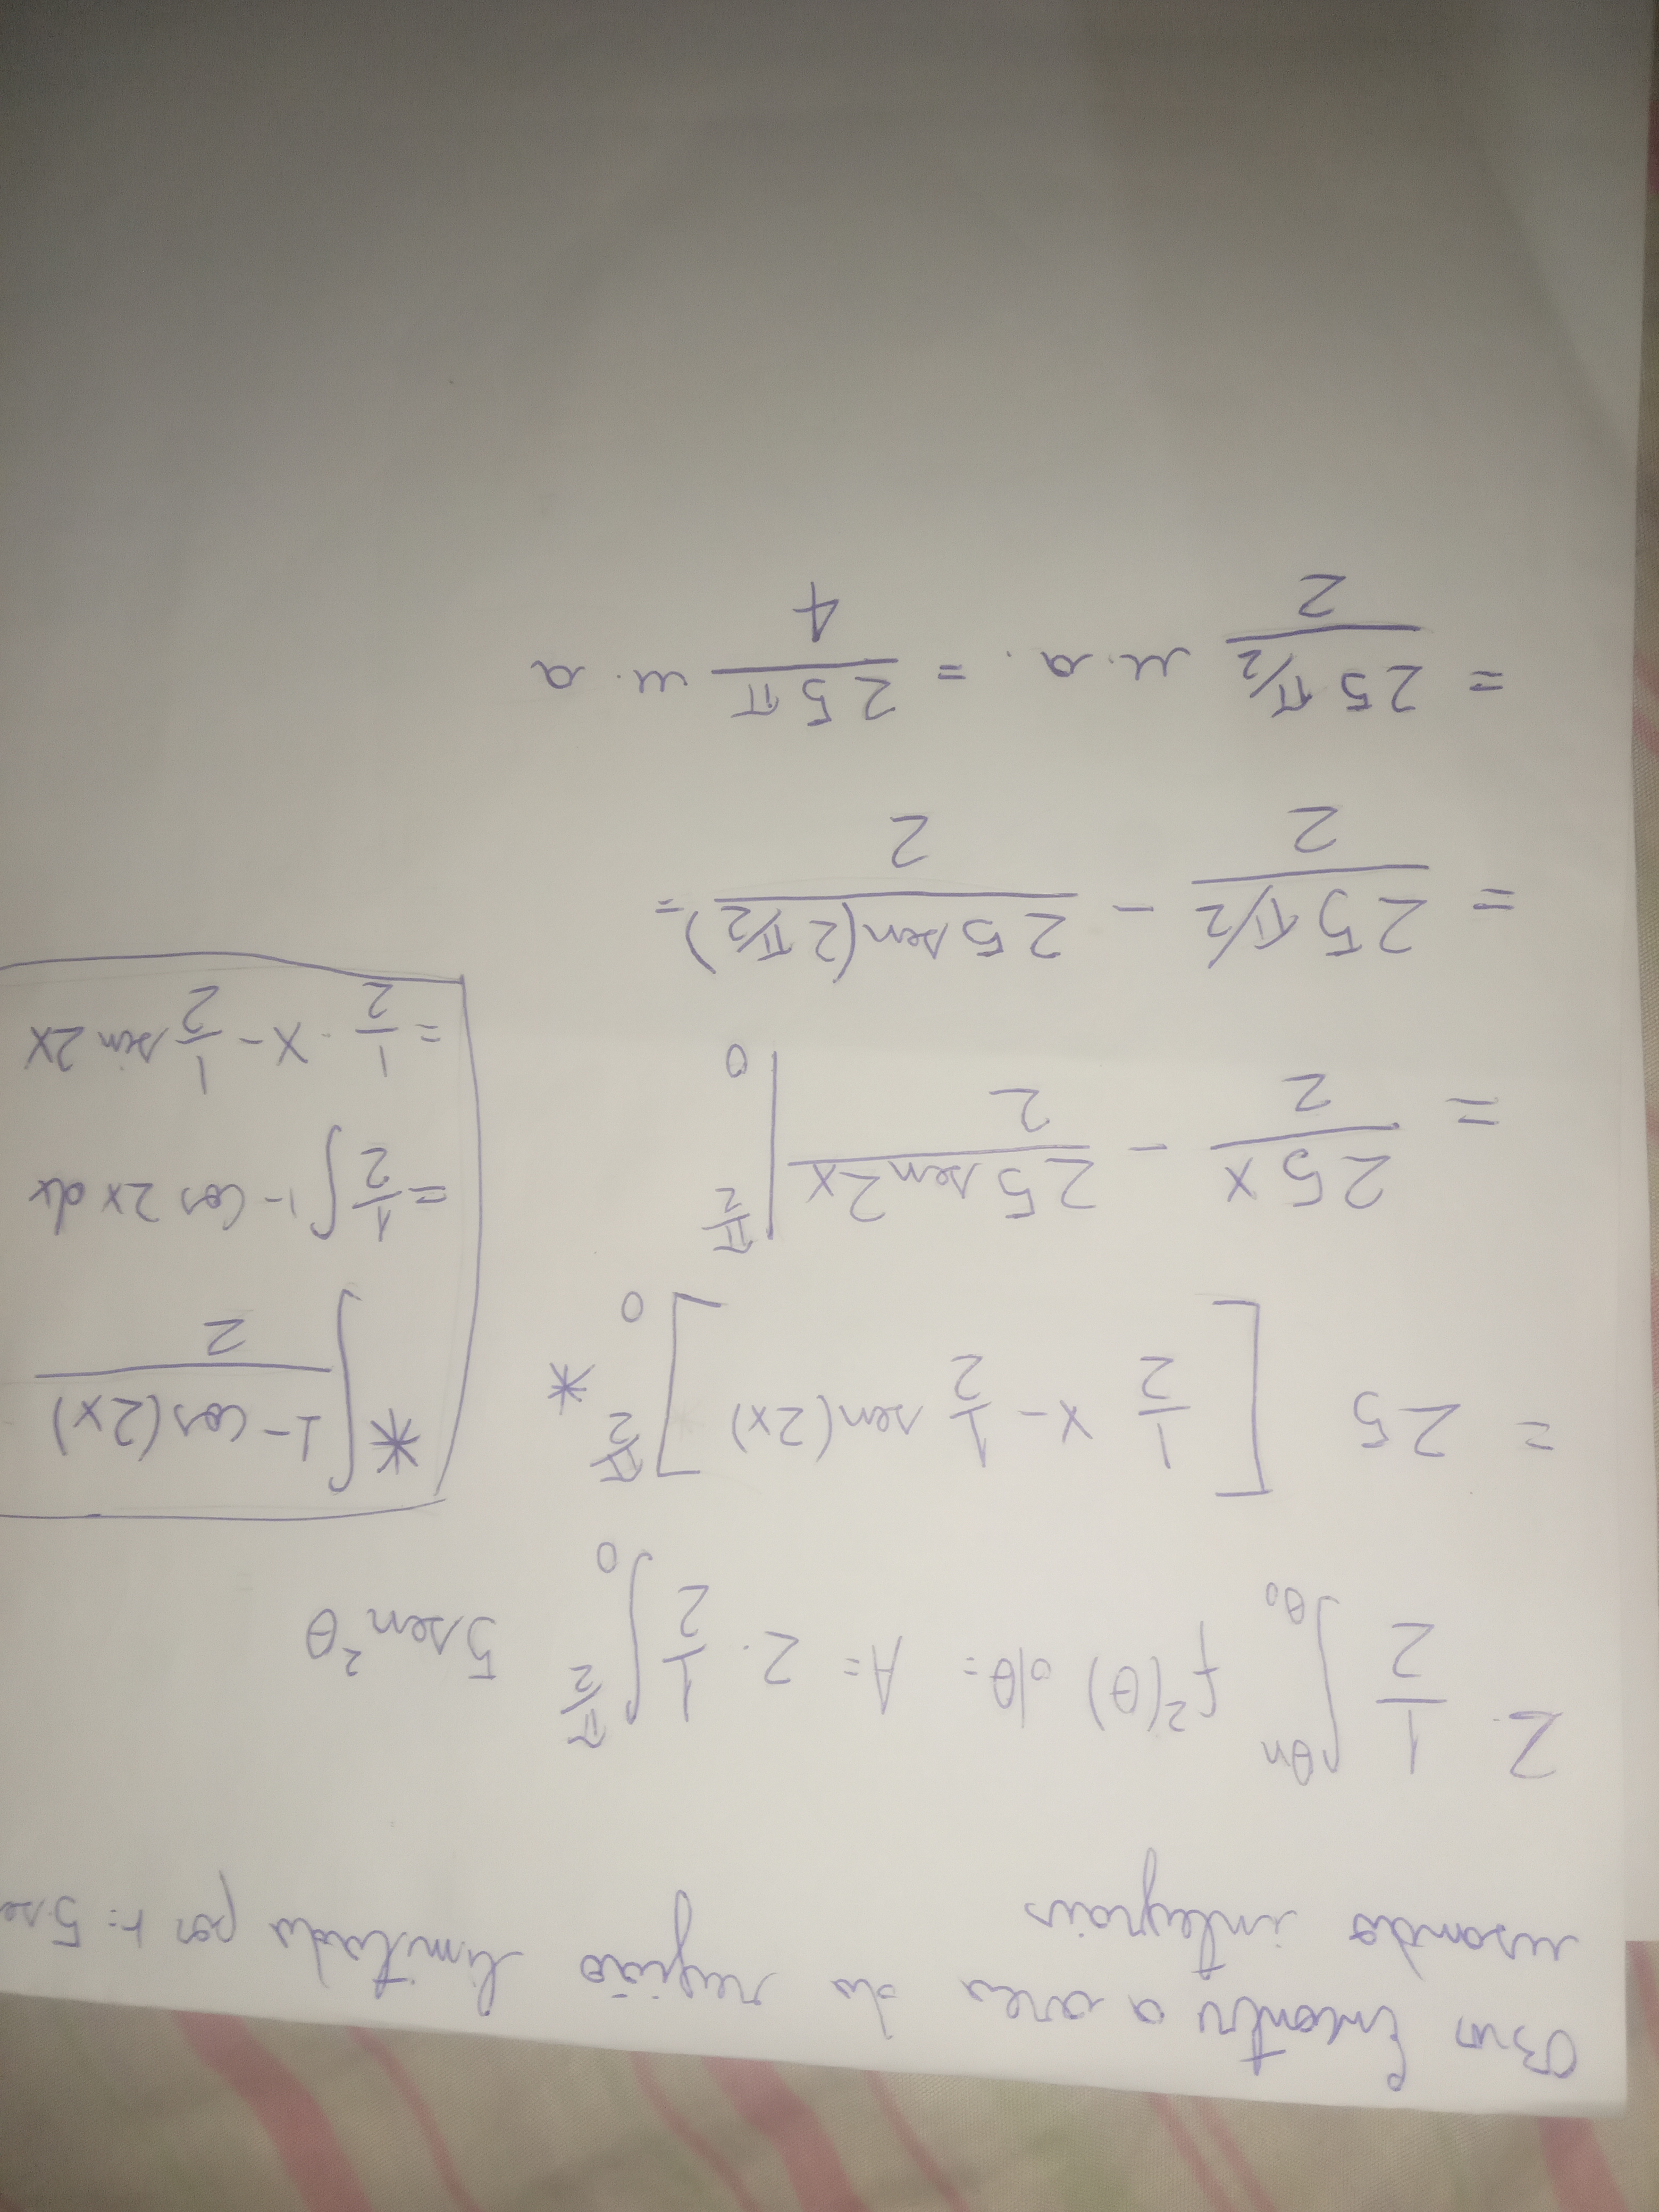 Encontre a area da região limitada por r = 5 se
usando integrais
2. 1/2 ∫_{θ₀}^{θn} f²(θ) dθ = A = 2 · 1/2 ∫_0^{π/2} 5 sen²θ
= 25 [1/2 x - 1/2 sen(2x)]_0^{π/2} *
= 25x/2 - 25 sen 2x/2 |_0^{π/2}
= 25π/2/2 - 25 sen(2π/2)/2 =
= 25π/2/2 u.a. = 25π/4 u.a
* ∫ 1 - cos(2x)/2
= 1/2 ∫ 1 - cos 2x dx
= 1/2 · x - 1/2 sen 2x